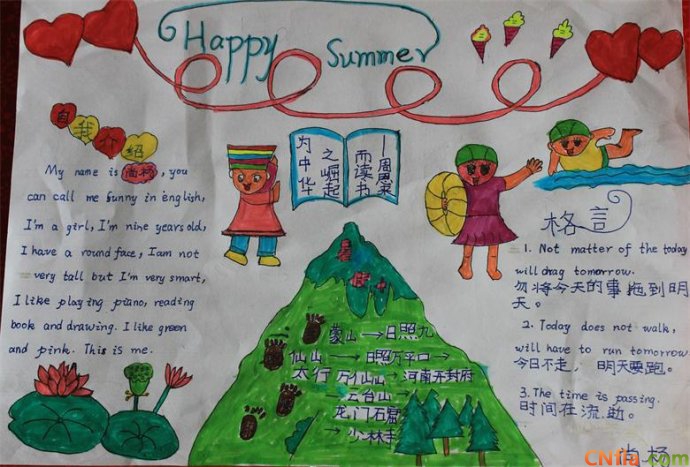 Happy Summer
自我介绍
My name is 尚杨, you
can call me Sunny in english,
I'm a girl, I'm nine years old,
I have a round face, Iam not
very tall but I'm very smart,
I like playing piano, reading
book and drawing. I like green
and pink. This is me.
为中华
之崛起
而读书
—周恩来
蒙山→日照九
仙山→日照万平口→
太行万仙山→河南开封府
→云台山→
龙门石窟
→少林寺
格言
1. Not matter of the today
will drag tomorrow.
勿将今天的事拖到明
天。
2. Today does not walk,
will have to run tomorrow
今日不走，明天要跑。
3. The time is passing.
时间在流逝。
尚杨